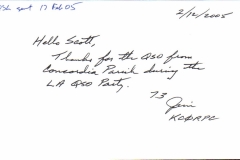 QSL sent 17 Feb 05
2/12/2005
Hello Scott,
Thanks for the QSO from
Concordia Parish during the
LA QSO Party.
73
Jim
KC0RPC